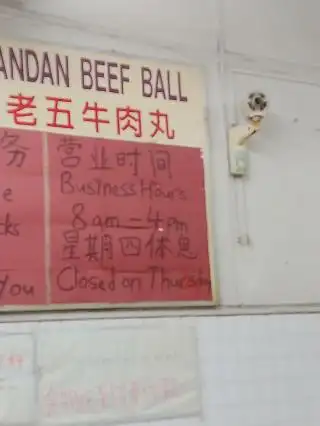 ANDAN BEEF BALL
老五牛肉丸
务 营业时间
e Business Hours
cks 8am — 4pm
星期四休息
You Closed on Thursday